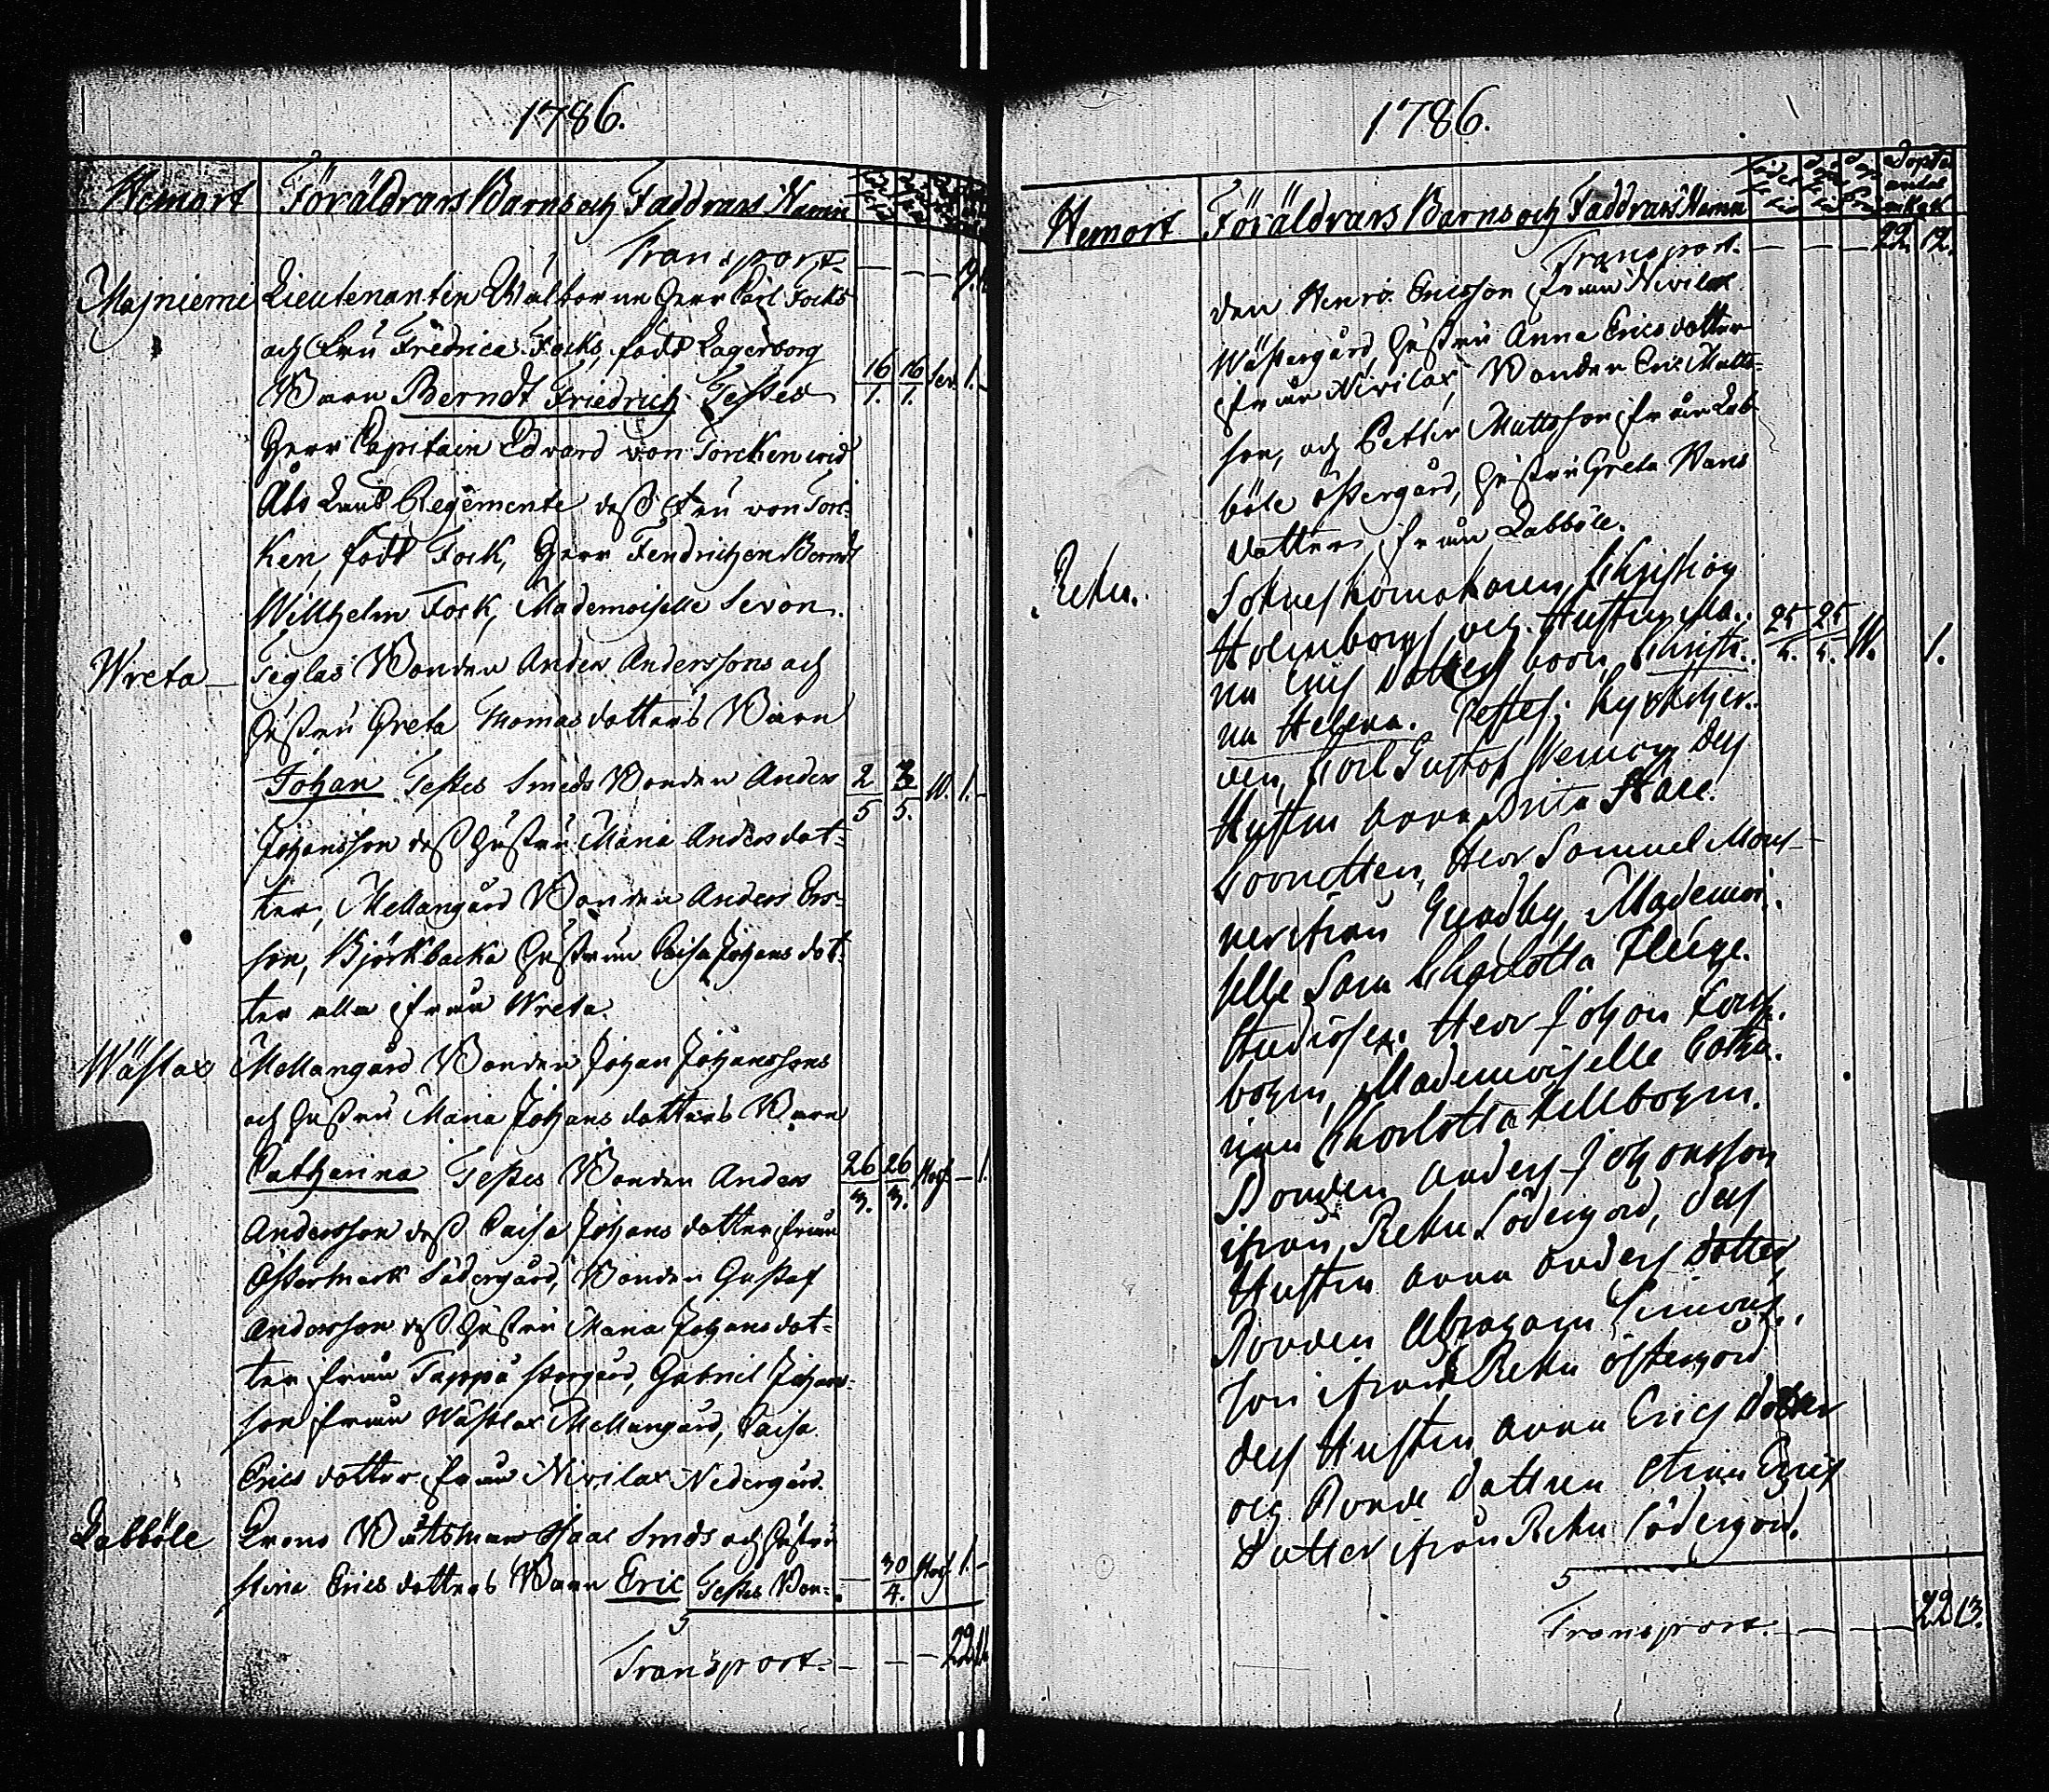 1786.
Hemort Föräldrars Barns och Faddrars Namn
Transport
Majniemi Lieutenanten Wälborne Herr Carl Focks
och Fru Fredrica Focks, född Lagerborg
Barn Berndt Friedrich Testes 16/1. 16/1. 1.
Herr Capitain Edvard von Torcken wid
Åbo Läns Regemente dess Fru von Tor-
ken, född Fock, Herr Fendrichen Berndt
Willhelm Fock, Mademoiselle Sevon.
Wreta Teglas Bonden Anders Anderssons och
Hustru Greta Thomasdotters Barn
Johan Testes Smeds Bonden Anders 2/5 3/5. W. 1.
Johansson dess Hustru Maria Anders dot-
ter, Mellangård Bonden Anders Ers-
son, Björkbacka Hustrun Caisa Johans dot-
ter alla ifrån Wreta.
Wästlax Mellangård Bonden Johan Johanssons
och Hustru Maria Johans dotters Barn
Catharina Testes Bonden Anders 26/3. 26/3. 1.
Andersson dess Caisa Johans dotter ifrån
Östermark Södergård, Bonden Gustaf
Andersson dess Hustru Maria Johans dot-
ter ifrån Tappo Storgård, Gabriel Johans-
son ifrån Wästlax Mellangård, Caisa
Erics dotter ifrån Nivilax Nedergård.
Labböle Crono Båtsman Isaac Smeds och Hustru
Stina Erics dotters Barn Eric Testes Bon- 30/4. 1.
Transport. 22
1786.
Hemort Föräldrars Barns och Faddrars Namn
Transport. 22. 12.
den Henric Ericsson ifrån Nivilax
Wästergård, Hustru Anna Erics dotter
ifrån Nivilax, Bonden Eric Matts-
son, och Petter Mattsson ifrån Lab-
böle Östergård, Hustru Greta Hans
dotter ifrån Labböle.
Reku. Sokneskomakaren Christian
Holmbergs och Hustru Ma-
ria Erics dotters barn Christi- 25/4. 25/4. W. 1.
na Helena. Testes; Kyrkoher-
den, Carl Gustaf Weman Dess
Hustru Anna Brita Stare.
Cornetten, Herr Samuel Mon-
ner ifrån Gundby, Mademoi-
selle Sara Charlotta Flege.
Studiosen Herr Johan Forss-
bohm, Mademoiselle Catha-
rina Charlotta Kellbohm.
Bonden Anders Johansson
ifrån Reku Södergård, dess
Hustru Anna Anders dotter,
Bonden Abraham Simons-
son ifrån Reku Östergård
dess Hustru Anna Erics Dotter
och Bonde Dottren Stina Erics
Dotter ifrån Reku Södergård.
Transport. 22 13.